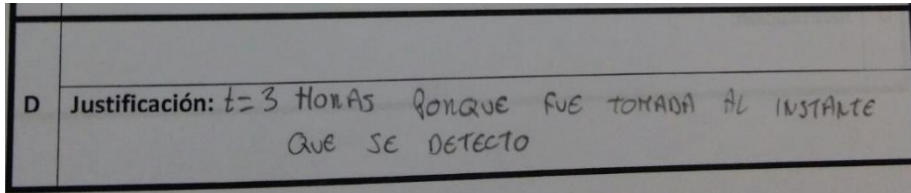 D Justificación: t=3 HORAS PORQUE FUE TOMADA AL INSTANTE
QUE SE DETECTO